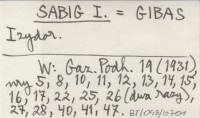 SABIG I. = GIBAS
Izydor.
W: Gaz. Podh. 19 (1931),
nry 5, 8, 10, 11, 12, 13, 14, 15,
16, 17, 22, 25, 26 (dwa razy),
27, 28, 40, 41, 47.